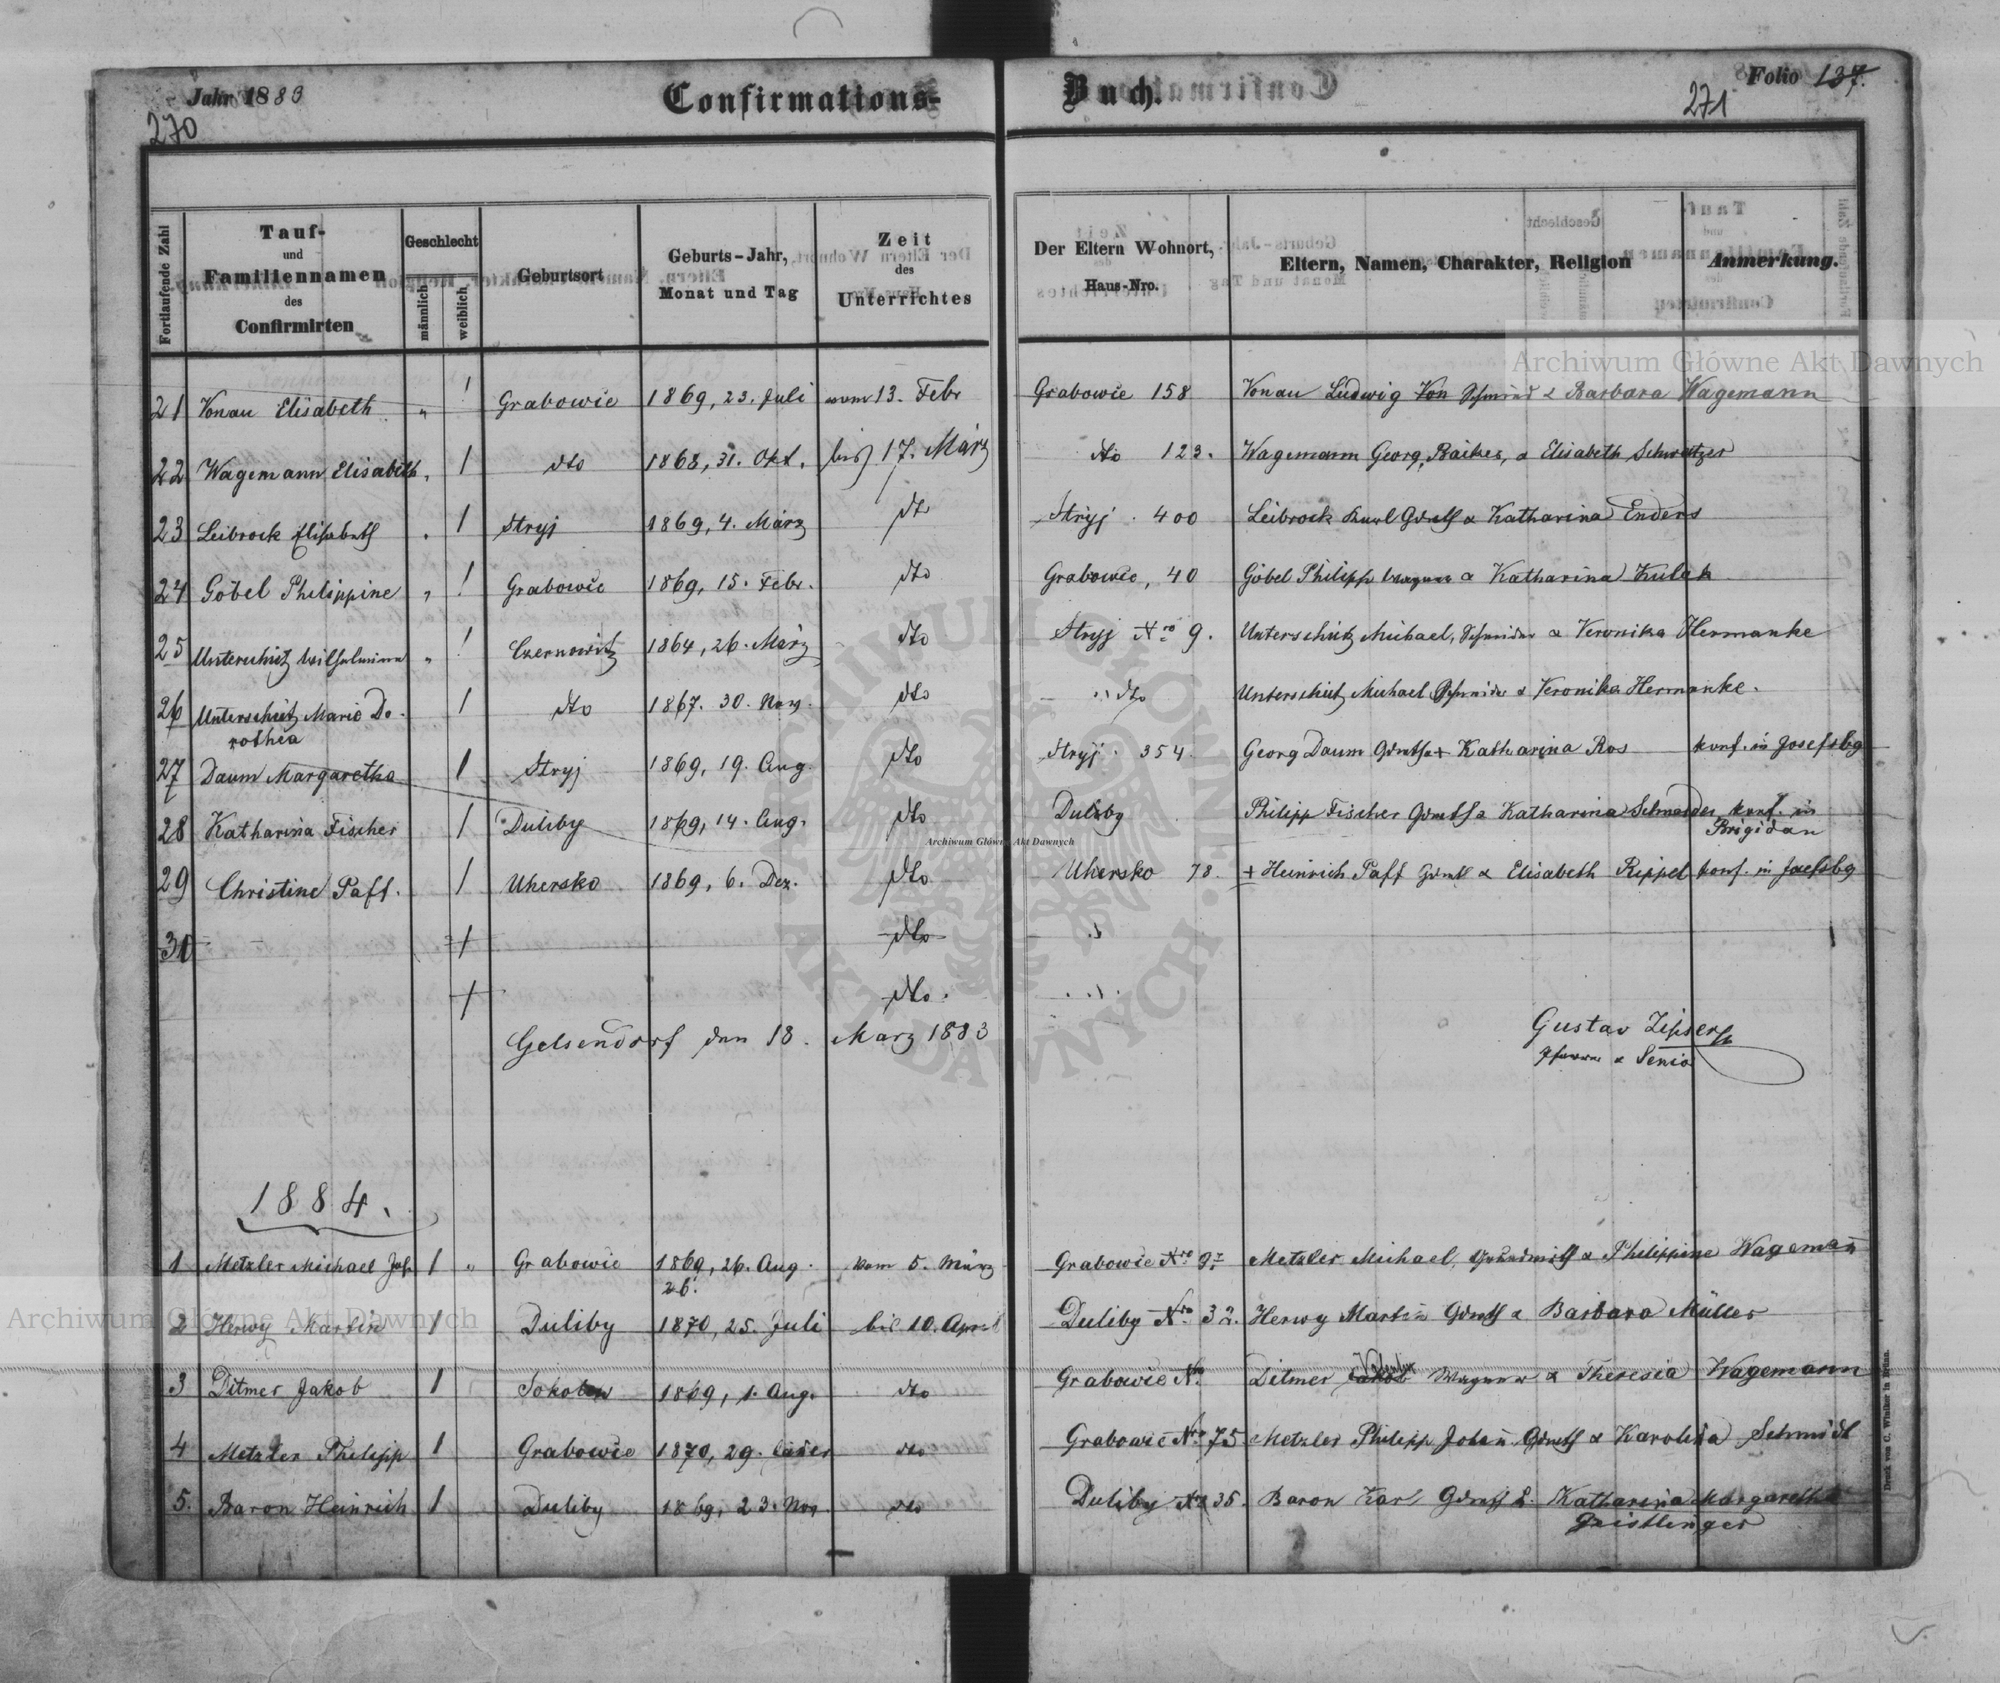 Jahr 1883
Confirmations-
Buch.
Folio 137.
270
271
Fortlaufende Zahl
Tauf-
und
Familiennamen
des
Confirmirten
Geschlecht
männlich
weiblich
Geburtsort
Geburts-Jahr,
Monat und Tag
Zeit
des
Unterrichtes
Der Eltern Wohnort,
Haus-Nro.
Eltern, Namen, Charakter, Religion
Anmerkung.
21 Vonau Elisabeth " 1 Grabowie 1869, 23. Juli vom 13. Febr Grabowie 158 Vonau Ludwig Von & Barbara Wagemann
22 Wagemann Elisabeth " 1 dto 1868, 31. Okt. bis 17. März dto 123. Wagemann Georg, & Elisabeth Schweitzer
23 Leibrock Elisabeth " 1 Stryj 1869, 4. März dto Stryj 400 Leibrock Karl Grdwth & Katharina Enders
24 Göbel Philippine " 1 Grabowie 1869, 15. Febr. dto Grabowie, 40 Göbel Philipp Wagner & Katharina Kulak
25 Unterschütz Wilhelmine " 1 Czernowitz 1864, 26. März dto Stryj Nro 9. Unterschütz Michael, Schneider & Veronika Hermanke
26 Unterschütz Marie Do- 1 dto 1867. 30. Nov. dto dto Unterschütz Michael Schneider & Veronika Hermanke.
rothea
27 Daum Margaretha 1 Stryj 1869, 19. Aug. dto Stryj 354. Georg Daum Grdwth & Katharina Ros konf. in Josefsbg
28 Katharina Fischer 1 Duliby 1869, 14. Aug. dto Duliby Philipp Fischer Grdwth & Katharina Schneider konf. in
Brigidau
29 Christine Paff. 1 Uhersko 1869, 6. Dez. dto Uhersko 78. + Heinrich Paff Grdwth & Elisabeth Rippel konf. in Josefsbg
30 1 dto
1 dto.
Gelsendorf den 18. März 1883
Gustav Zipser
Pfarrer & Senior
1884.
1 Metzler Michael Joh 1 " Grabowie 1869, 26. Aug. vom 5. März Grabowie Nro 97 Metzler Michael, Grundwirth & Philippine Wagemann
26.
2 Herwy Martin 1 Duliby 1870, 25. Juli bis 10. April Duliby Nro 32. Herwy Martin Grdwth & Barbara Müller
3 Ditmer Jakob 1 Sokolow 1869, 1. Aug. dto Grabowie Nro Ditmer Jakob Wagner & Theresia Wagemann
4 Metzler Philipp 1 Grabowie 1870, 29. Jäner dto Grabowie Nro 75 Metzler Philipp Johann Grdwth & Karolina Schmidt
5. Baron Heinrich 1 Duliby 1869, 23. Nov. dto Duliby No 35. Baron Karl Grdwth & Katharina Margaretha
Geistlinger
Druck von C. Winiker in Brünn.
Archiwum Główne Akt Dawnych
Archiwum Główne Akt Dawnych
Archiwum Główne Akt Dawnych
ARCHIWUM GŁÓWNE AKT DAWNYCH